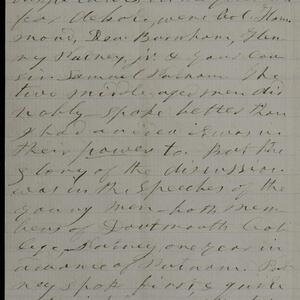 for debate, were Col. Ham
mond, Dea Burnham, Hen
ry Putney, jr. & your cou
sin Samuel Putnam. The
two middle aged men did
nobly - spoke better than
I had and it was in
their power to. But the
glory of the discussion
was in the speeches of the
young men - both mem
bers of Dartmouth Col
lege, Putney one year in
advance of Putnam. Put
ney spoke first, & gave